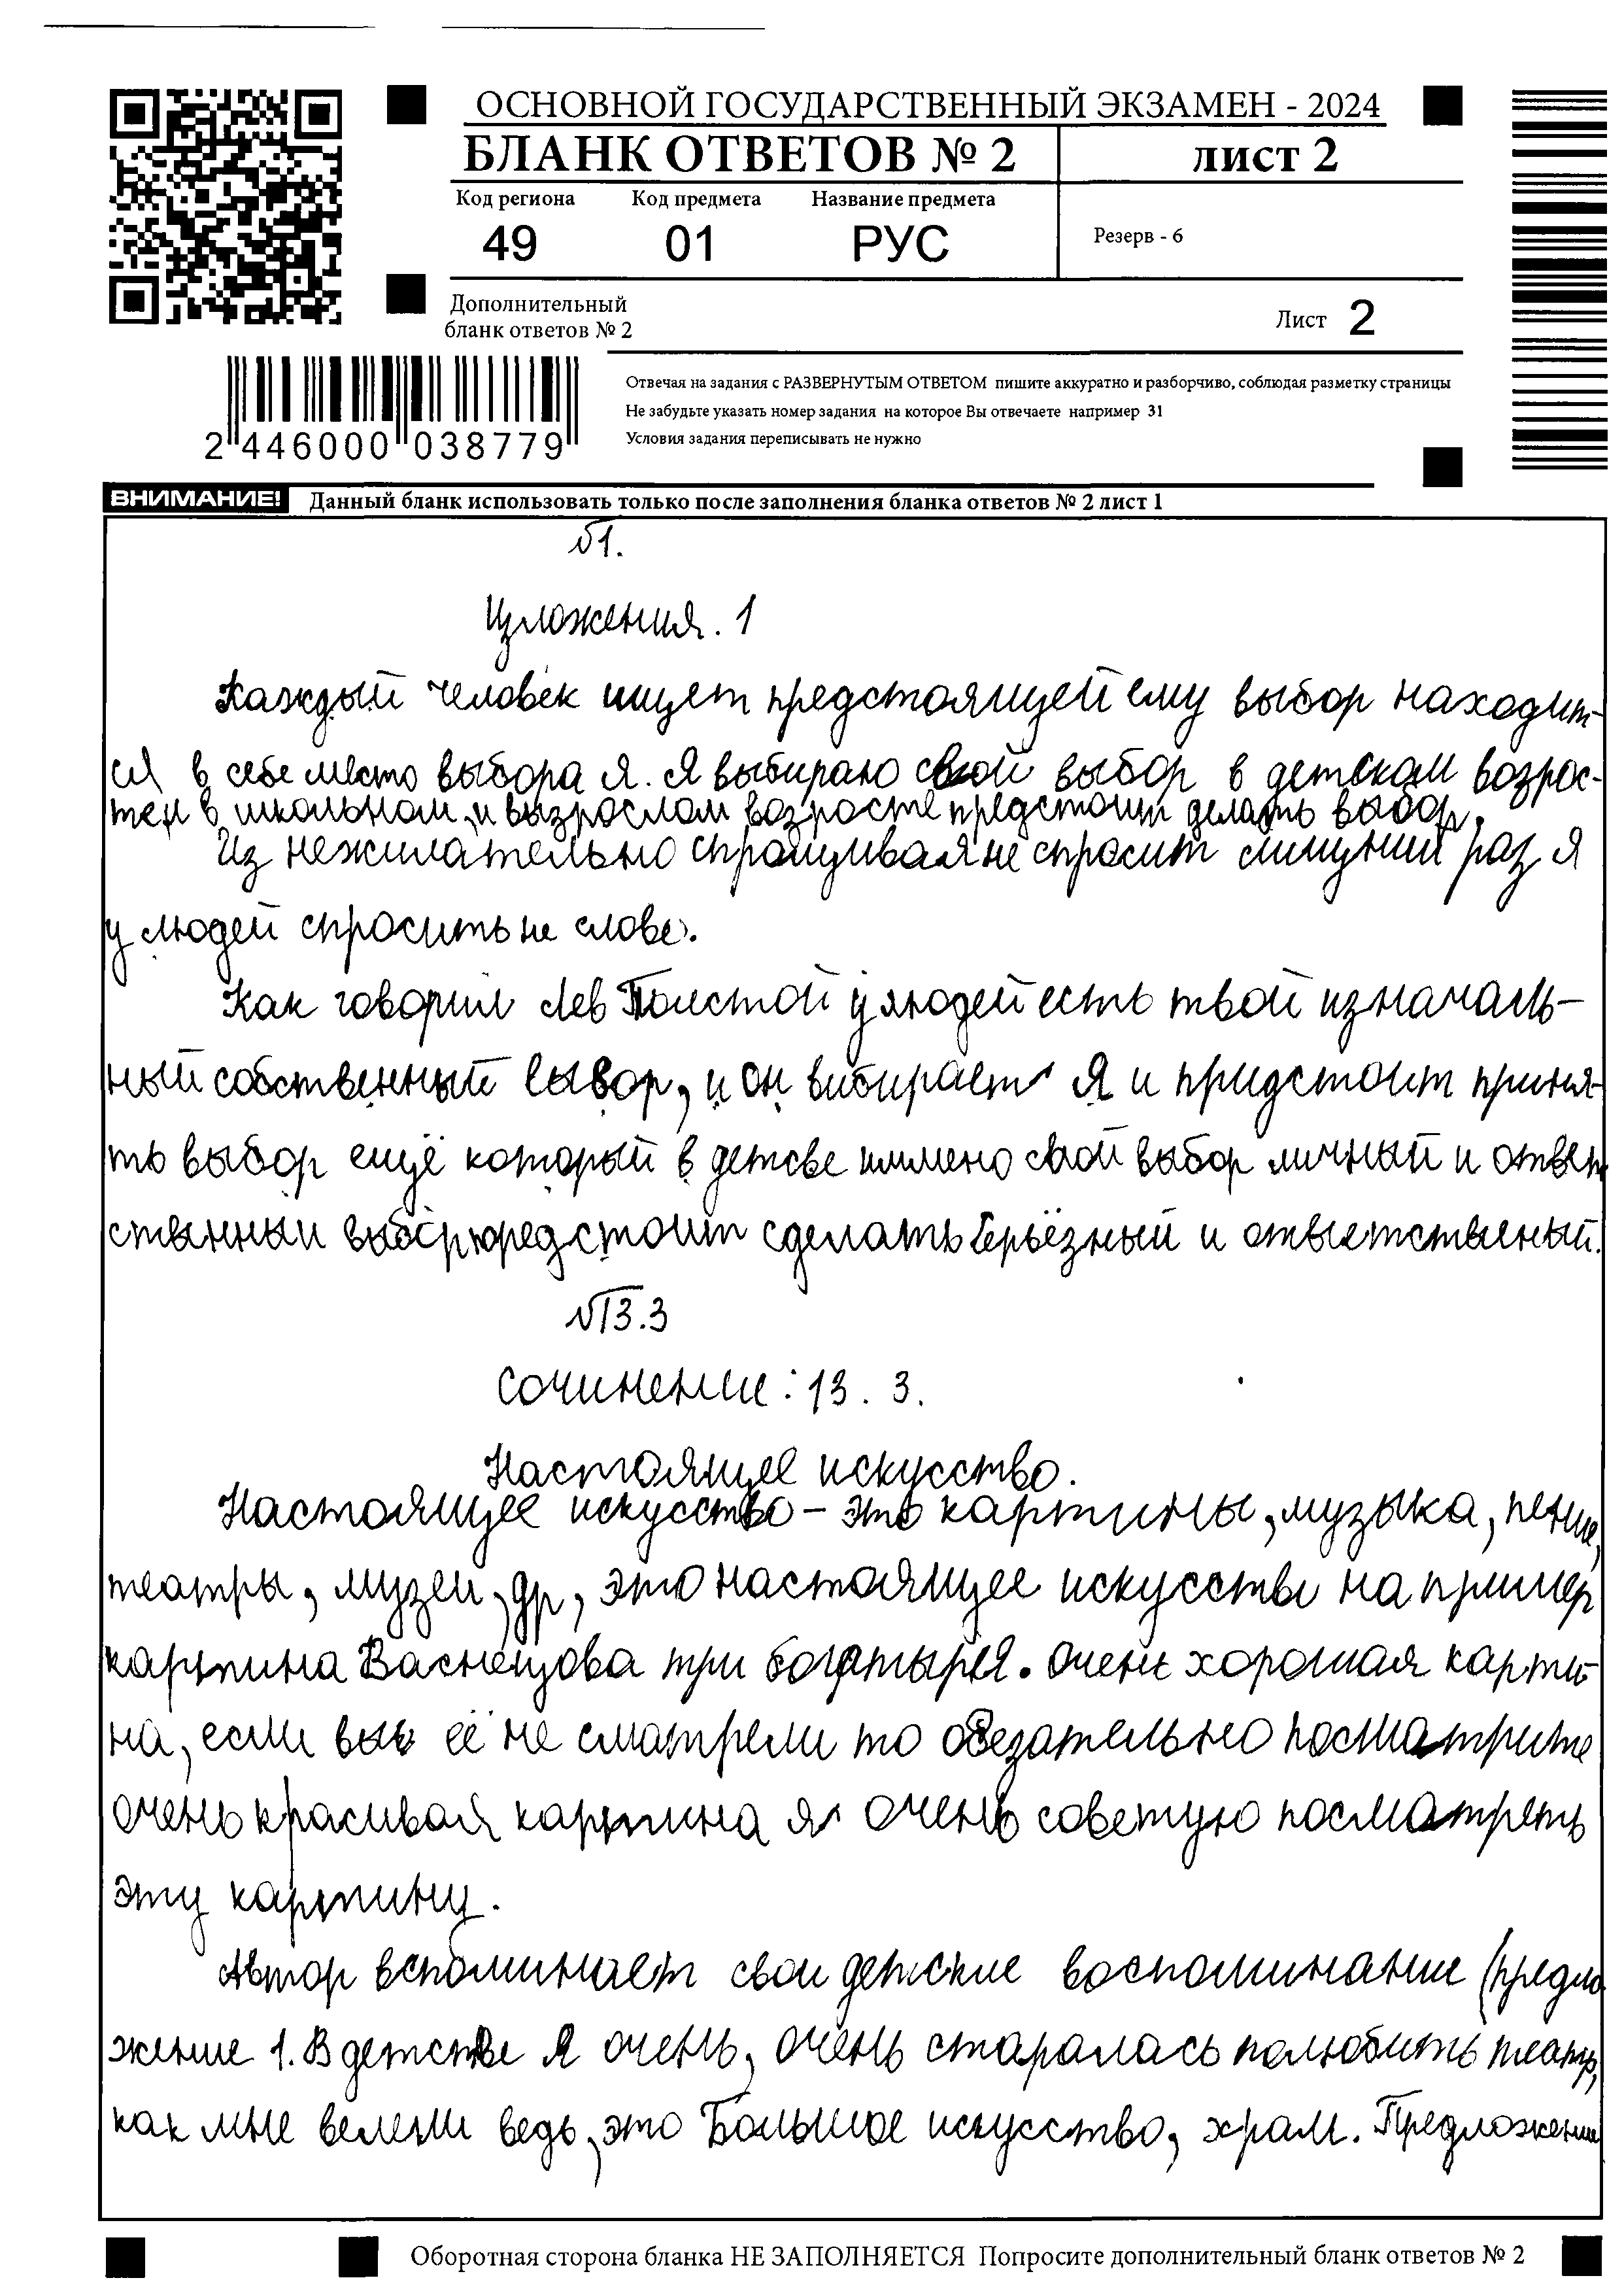 ОСНОВНОЙ ГОСУДАРСТВЕННЫЙ ЭКЗАМЕН - 2024
БЛАНК ОТВЕТОВ № 2
лист 2
Код региона Код предмета Название предмета
49 01 РУС
Резерв - 6
Дополнительный
бланк ответов № 2
Лист 2
Отвечая на задания с РАЗВЕРНУТЫМ ОТВЕТОМ пишите аккуратно и разборчиво, соблюдая разметку страницы
Не забудьте указать номер задания на которое Вы отвечаете например 31
Условия задания переписывать не нужно
2 446000 038779
ВНИМАНИЕ! Данный бланк использовать только после заполнения бланка ответов № 2 лист 1
√1.
Изложения. 1
Каждый человек ищет предстоящей ему выбор находит-
ся в себе место выбора я. Я выбираю свой выбор в детском возрос-
тен в школьном, и вызрослом возросте предстоит делать выбор.
Из нежилательно спрашивая не спросит лишний раз я
у людей спросить не слове.
Как говорил Лев Толстой у людей есть твой изначаль-
ный собственный выбор, и он вибирает Я и придстоит приня-
ть выбор ещё который в детсве имено свой выбор личный и ответ
ственный выбор предстоит сделать серьёзный и отвытственый.
√13.3
Сочинение: 13. 3.
Настоящее искусство.
Настоящее искусство – это картины, музыка, пение,
театры, музеи, др, это настоящее искусства на пример
картина Васнецова три богатыря. Очень хорошая карти
на, если вы её не сматрели то обезательно посматрите
очень красивая картина я очень советую посматреть
эту картину.
Автор вспоминает свои детские воспоминание (предло
жение 1. В детстве я очень, очень старалась полюбить театр,
как мне велели ведь, это Большое искусство, храм. Предложение
Оборотная сторона бланка НЕ ЗАПОЛНЯЕТСЯ Попросите дополнительный бланк ответов № 2